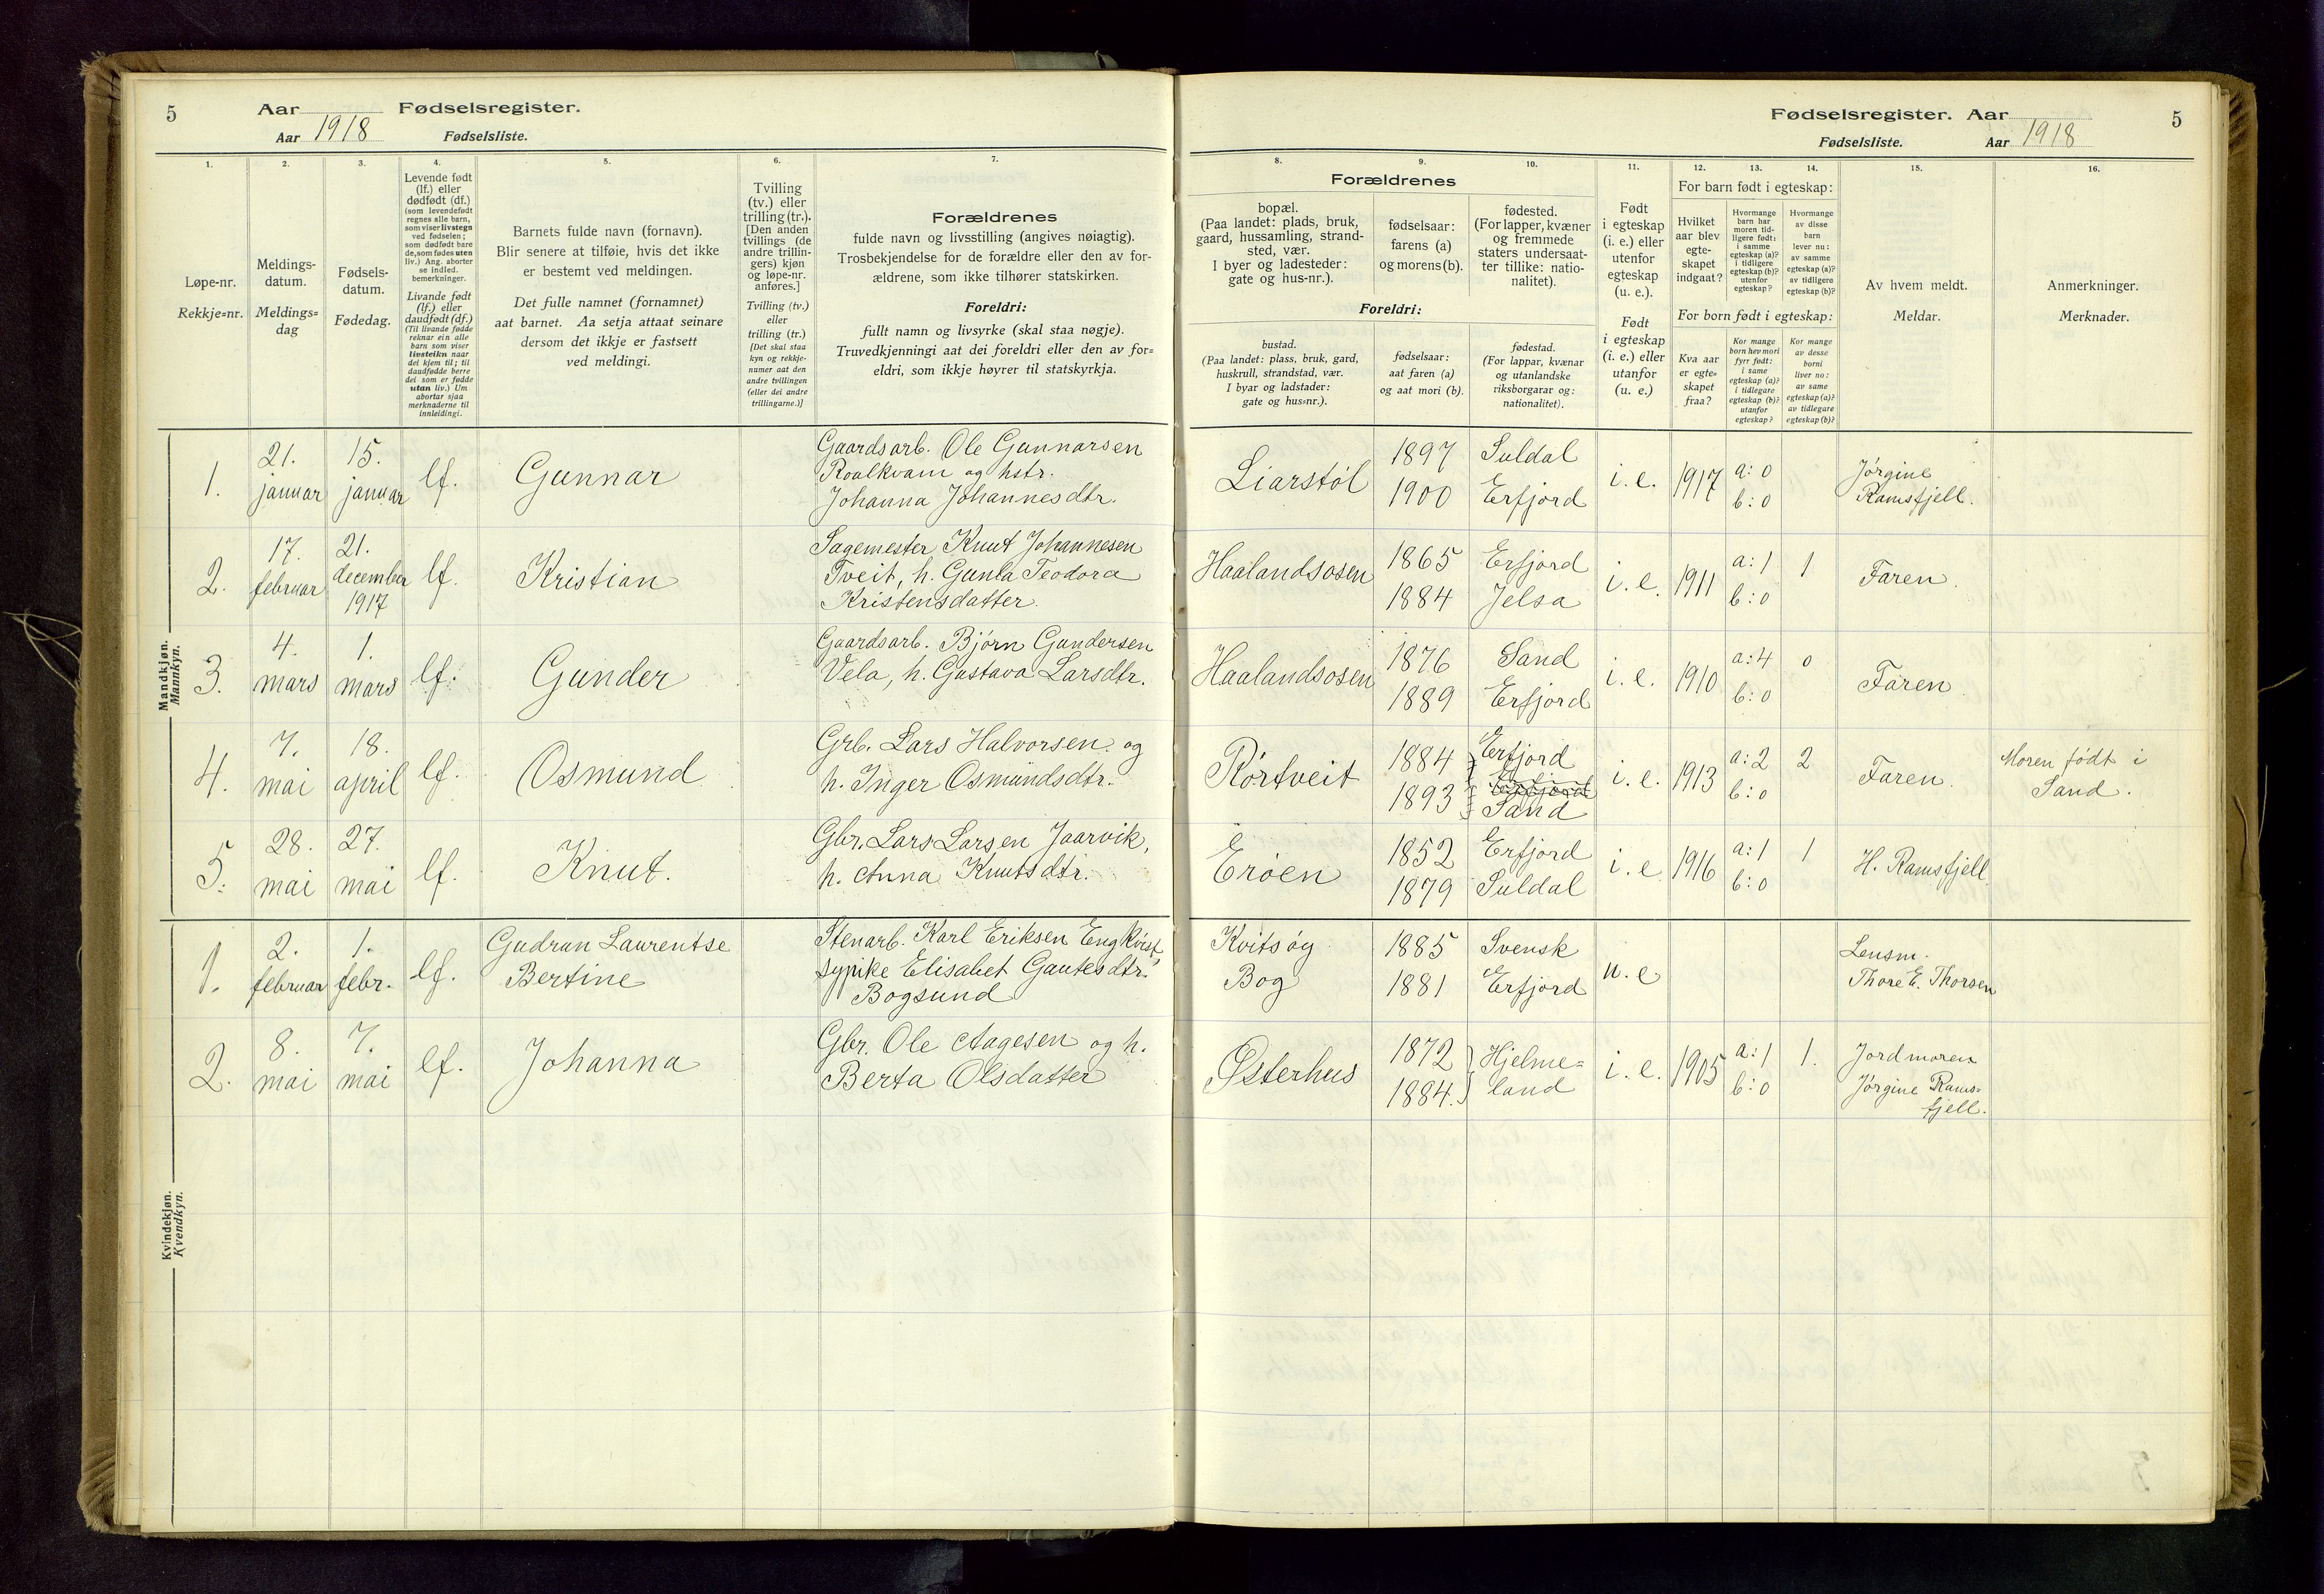 5
Aar Fødselsregister.
Aar 1918 Fødselsliste.
1.
2.
3.
4.
5.
6.
7.
Løpe-nr.
Rekkje=nr.
Meldings-
datum.
Meldings=
dag
Fødsels-
datum.
Fødedag.
Levende født
(lf.) eller
dødfødt (df.)
(som levendefødt
regnes alle barn,
som viser livstegn
ved fødselen;
som dødfødt bare
de, som fødes uten
liv.) Ang. aborter
se indled.
bemerkninger.
Livande født
(lf.) eller
daudfødt (df.)
(Til livande fødde
reknar ein alle
barn som viser
livsteikn naar
dei kjem til; til
daudfødde berre
dei som er fødde
utan liv.) Um
abortar sjaa
merknaderne til
innleidingi.
Barnets fulde navn (fornavn).
Blir senere at tilføie, hvis det ikke
er bestemt ved meldingen.
Det fulle namnet (fornamnet)
aat barnet. Aa setja attaat seinare
dersom det ikkje er fastsett
ved meldingi.
Tvilling
(tv.) eller
trilling (tr.).
[Den anden
tvillings (de
andre trillin-
gers) kjøn
og løpe-nr.
anføres.]
Tvilling (tv.)
eller
trilling (tr.)
[Det skal staa
kyn og rekkje-
numer aat den
andre tvillingen
(eller dei andre
trillingarne.)]
Forældrenes
fulde navn og livsstilling (angives nøiagtig).
Trosbekjendelse for de forældre eller den av for-
ældrene, som ikke tilhører statskirken.
Foreldri:
fullt namn og livsyrke (skal staa nøgje).
Truvedkjenningi aat dei foreldri eller den av for=
eldri, som ikkje høyrer til statskyrkja.
Mandkjøn.
Mannkyn.
1.
21.
januar
15.
januar
lf.
Gunnar
Gaardsarb. Ole Gunnarsen
Roalkvam og hstr.
Johanna Johannesdtr.
2.
17.
februar
21.
december
1917
lf.
Kristian
Sagemester Knut Johannesen
Tveit, h. Gunla Teodora
Kristensdatter.
3.
4.
mars
1.
mars
lf.
Gunder
Gaardsarb. Bjørn Gundersen
Vela, h. Gustava Larsdtr.
4.
7.
mai
18.
april
lf.
Osmund
Grb. Lars Halvorsen og
h. Inger Osmundsdtr.
5.
28.
mai
27.
mai
lf.
Knut.
Gbr. Lars Larsen Jaarvik,
h. Anna Knutsdtr.
Kvindekjøn.
Kvendkyn.
1.
2.
februar
1.
febr.
lf.
Gudrun Laurentse
Bertine
Stenarb. Karl Eriksen Engkvist,
sypike Elisabet Gautesdtr.
Bogsund
2.
8.
mai
7.
mai
lf.
Johanna
Gbr. Ole Aagesen og h.
Berta Olsdatter
Fødselsregister. Aar
5
Fødselsliste. Aar 1918
8.
9.
10.
11.
12.
13.
14.
15.
16.
Forældrenes
bopæl.
(Paa landet: plads, bruk,
gaard, hussamling, strand-
sted, vær.
I byer og ladesteder:
gate og hus-nr.).
fødselsaar:
farens (a)
og morens (b).
fødested.
(For lapper, kvæner
og fremmede
staters undersaat-
ter tillike: natio-
nalitet).
Foreldri:
bustad.
(Paa landet: plass, bruk, gard,
huskrull, strandstad, vær.
I byar og ladstader:
gate og hus=nr.).
fødselsaar:
aat faren (a)
og aat mori (b).
fødestad.
(For lappar, kvænar
og utanlandske
riksborgarar og:
nationalitet).
Født
i egteskap
(i. e.) eller
utenfor
egteskap
(u. e.).
Født
i egteskap
(i. e.) eller
utanfor
(u. e.)
For barn født i egteskap:
Hvilket
aar blev
egte-
skapet
indgaat?
Hvormange
barn har
moren tid-
ligere født:
i samme
egteskap (a)?
i tidligere
egteskap (b)?
utenfor
egteskap?
Hvormange
av disse
barn
lever nu:
av samme
egteskap (a)?
av tidligere
egteskap (b)?
For born født i egteskap:
Kva aar
er egte=
skapet
fraa?
Kor mange
born hev mori
fyrr født:
i same
egteskap (a)?
i tidlegare
egteskap (b)?
utanfor
egteskap?
Kor mange
av desse
borni
liver no:
av same
egteskap (a)?
av tidlegare
egteskap (b)?
Av hvem meldt.
Meldar.
Anmerkninger.
Merknader.
Liarstøl
1897
1900
Suldal
Erfjord
i. e.
1917
a: 0
b: 0
Jørgine
Ramsfjell.
Haalandsosen
1865
1884
Erfjord
Jelsa
i. e.
1911
a: 1
b: 0
1
Faren.
Haalandsosen
1876
1889
Sand
Erfjord
i. e.
1910
a: 4
b: 0
0
Faren.
Rørtveit
1884
1893
Erfjord
Erfjord
Sand
i. e.
1913
a: 2
b: 0
2
Faren.
Moren født i
Sand.
Erøen
1852
1879
Erfjord
Suldal
i. e
1916
a: 1
b: 0
1
H. Ramsfjell
Kvitsøy
Bog
1885
1881
Svensk
Erfjord
u. e
Lensm.
Thore E. Thorsen
Østerhus
1872
1884.
Hjelme=
land
i. e.
1905
a: 1
b: 0
1.
Jordmoren
Jørgine Rams=
fjell.